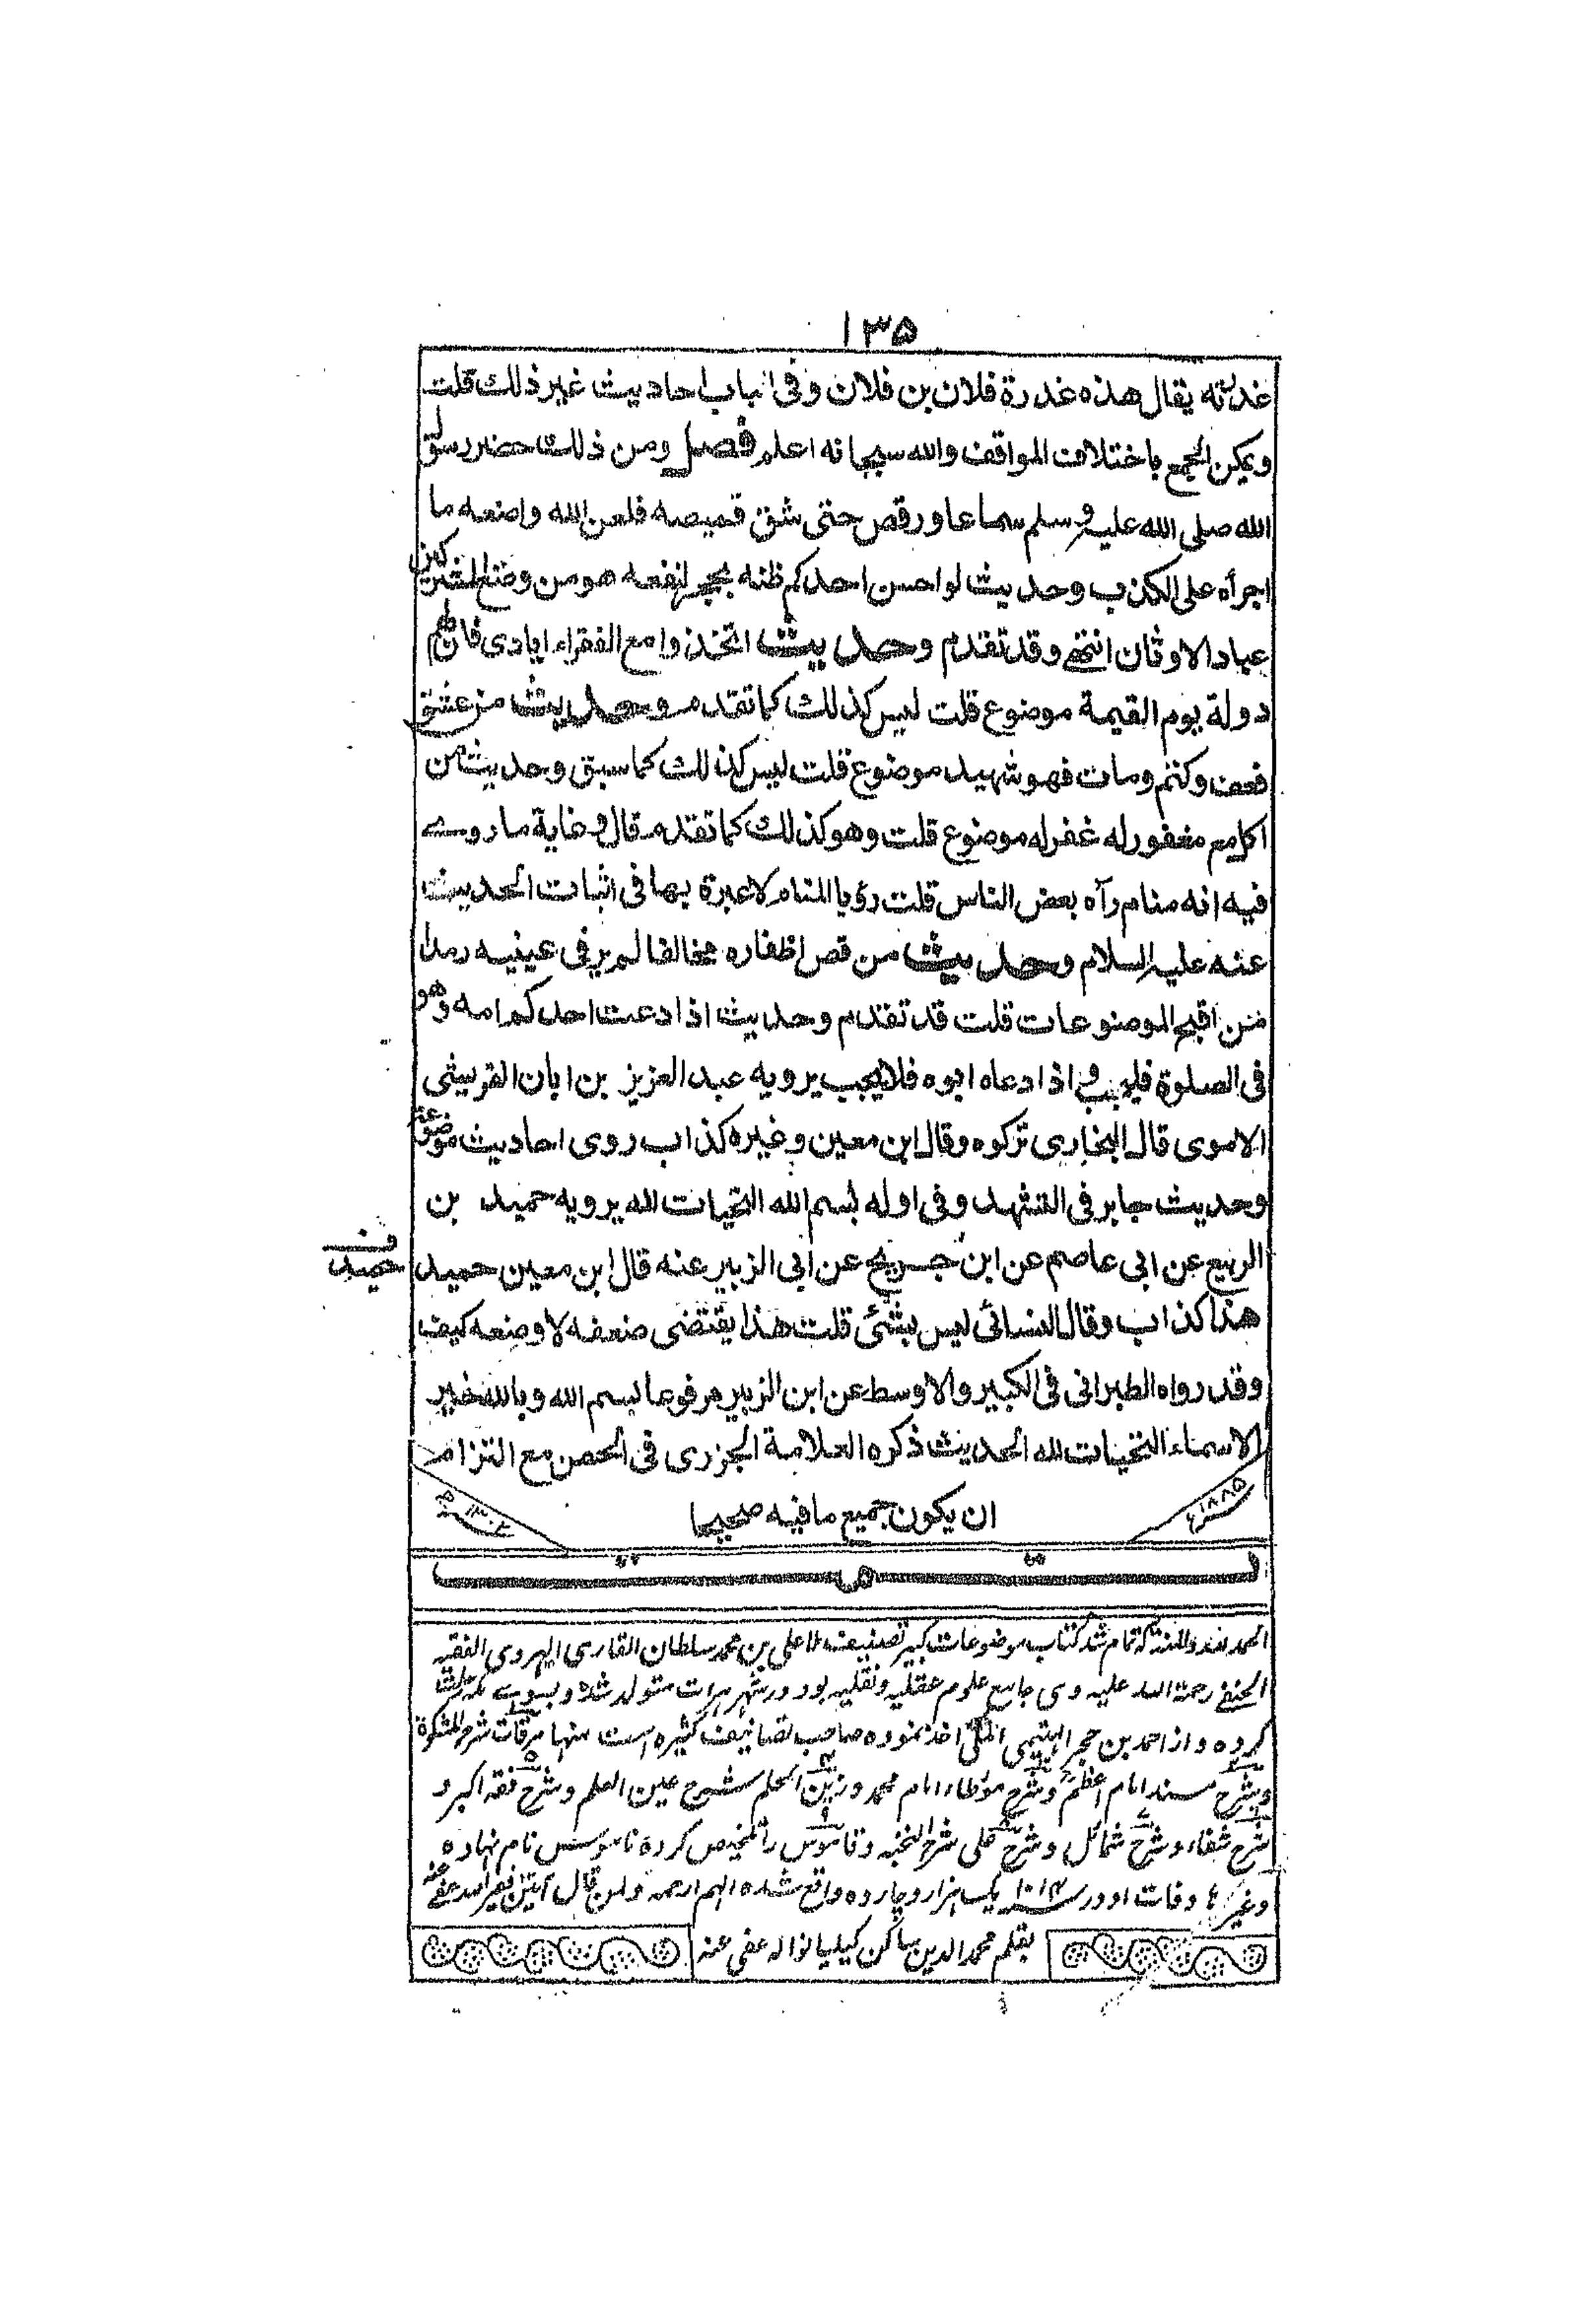 ۱۳۵
غدرته يقال هذه غدرة فلان بن فلان وفى الباب احاديث غير ذلك قلت
ويمكن الجمع باختلاف المواقف والله سبحانه اعلم فصل ومن ذلك حضر رسول
الله صلى الله عليه وسلم سماعا ورقص حتى شق قميصه فلعن الله واضعه ما
اجرأه على الكذب وحديث لو احسن احدكم ظنه بحجر لنفعه هو من وضع المشركين
عباد الاوثان انتهى وقد تقدم وحديث اتخذوا مع الفقراء ايادى فان لهم
دولة يوم القيمة موضوع قلت ليس كذلك كما تقدم وحديث من عشق
فعف وكتم ومات فهو شهيد موضوع قلت ليس كذلك كما سبق وحديث من
اكل مع مغفور له غفر له موضوع قلت وهو كذلك كما تقدم قال وغاية ما روے
فيه انه منام رآه بعض الناس قلت رؤيا المنام لا عبرة بها فى اثبات الحديث
عنه عليه السلام وحديث من قص اظفاره مخالفا لم ير فى عينيه رمدا
من اقبح الموضوعات قلت قد تقدم وحديث اذا دعت احدكم امه وهو
فى الصلوة فليجب واذا دعاه ابوه فلا يجب يرويه عبد العزيز بن ابان القريشى
الاموى قال البخارى تركوه وقال ابن معين وغيره كذاب روى احاديث موضوعة
وحديث جابر فى التشهد وفى اوله بسم الله التحيات لله يرويه حميد بن
الربيع عن ابى عاصم عن ابن جريج عن ابى الزبير عنه قال ابن معين حميد
حميد
هذا كذاب وقال النسائى ليس بشئ قلت هذا يقتضى ضعفه لا وضعه كيف
وقد رواه الطبرانى فى الكبير والاوسط عن ابن الزبير مرفوعا بسم الله وبالله خير
الاسماء التحيات لله الحديث ذكره العلامة الجزرى فى الحصن مع التزام
ان يكون جميع ما فيه صحيحا
۱۸۸۵
۱۳۰۲
تمت
الحمد لله والمنة كه تمام شد كتاب موضوعات كبير تصنيف ملا على بن محمد سلطان القارى الهروى الفقيه
الحنفے رحمة الله عليه وى جامع علوم عقليه ونقليه بود در شهر هرات متولد شده وبسوے مكه رحلت
كرده و از احمد بن حجر الهيتمى المكى اخذ نموده صاحب تصانيف كثيره است منها مرقات شرح المشكوة
وشرح مسند امام اعظم وشرح مؤطاء امام محمد وزين الحلم شرح عين العلم وشرح فقه اكبر و
شرح شفاء وشرح شمائل وشرح على شرح النخبه وقاموس را تلخيص كرده ناموس نام نهاده
وغيرها وفات او در ۱۰۱۴ يك هزار وچارده واقع شده اللهم ارحمه ولمن قال آمين فقير الله عفے عنه
بقلم محمد الدين ساكن كيليانواله عفى عنه